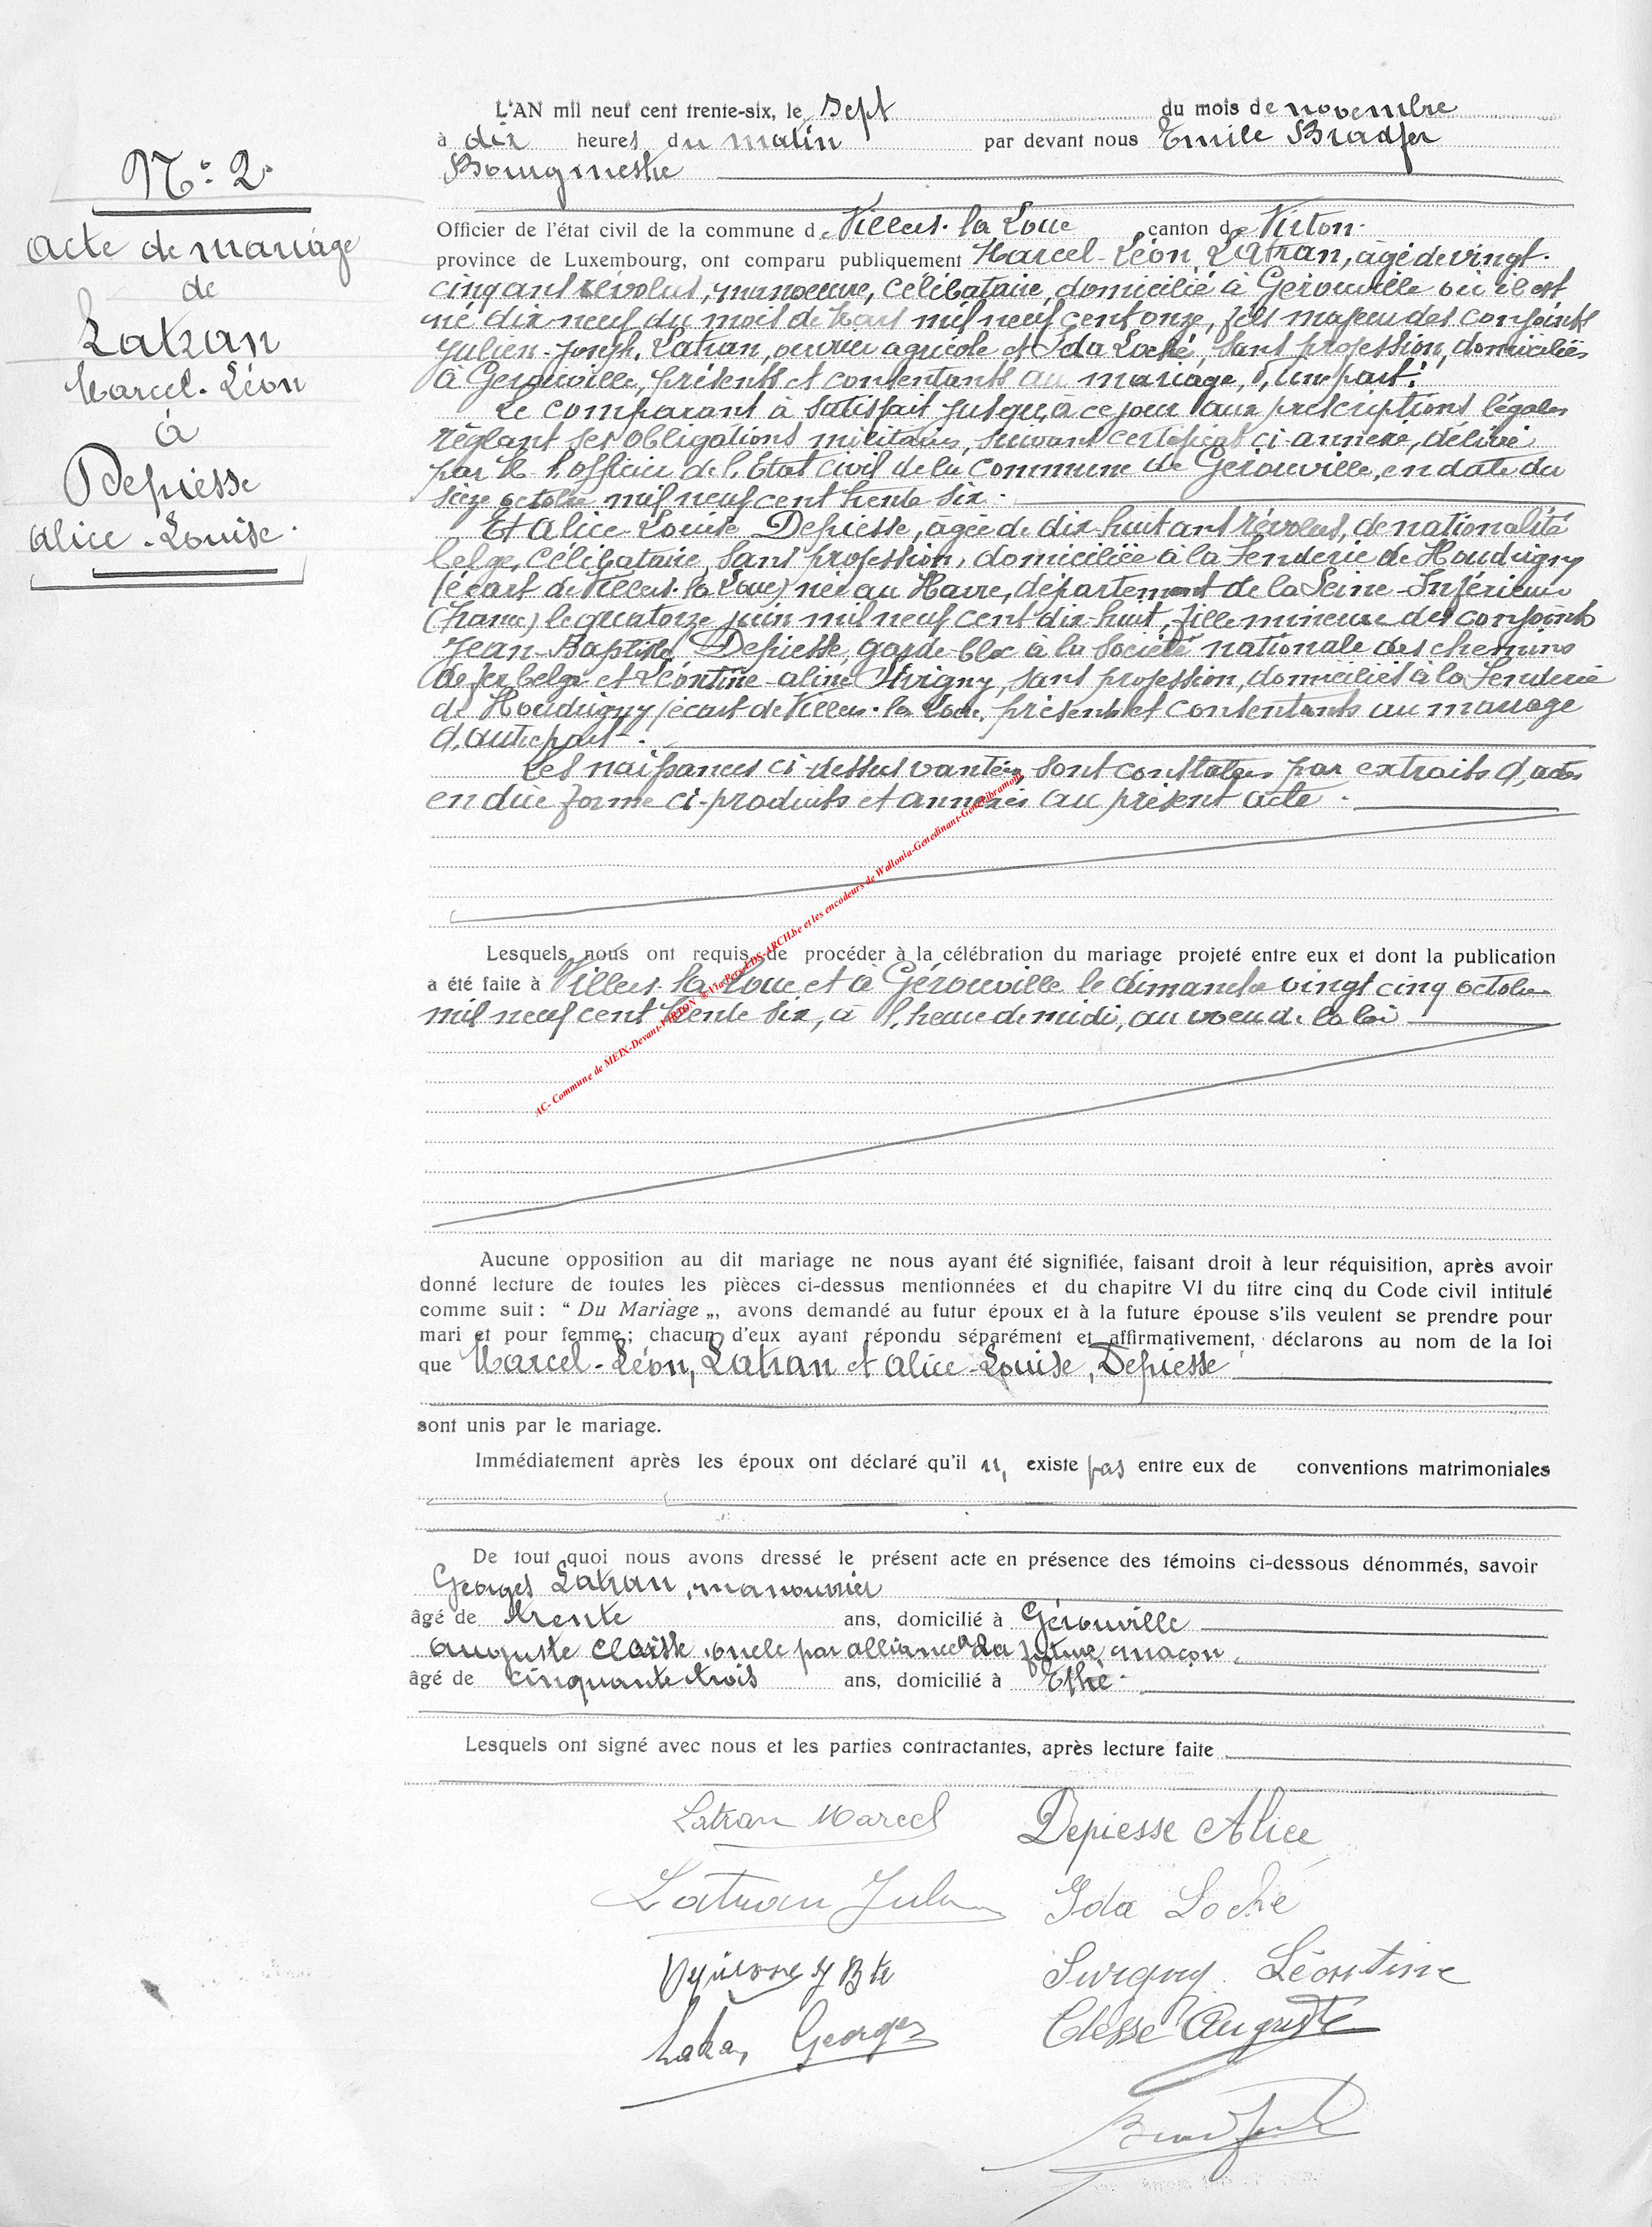 N° 2.
Acte de mariage
de
Latran
Marcel-Léon
à
Depiesse
Alice-Louise.
L'AN mil neuf cent trente-six, le sept du mois de novembre
à dix heures du matin par devant nous Emile Bradfer
Bourgmestre
Officier de l'état civil de la commune de Villers-la-Loue canton de Virton.
province de Luxembourg, ont comparu publiquement Marcel-Léon Latran, âgé de vingt-
cinq ans révolus, manoeuvre, célibataire, domicilié à Gérouville où il est
né dix-neuf du mois de Mars mil neuf cent onze, fils majeur des conjoints
Julien-Joseph, Latran, ouvrier agricole et Ida Loché, sans profession, domiciliés
à Gérouville, présents et consentants au mariage, d'une part.
Le comparant à satisfait jusqu'à ce jour aux prescriptions légales
réglant ses obligations militaires, suivant certificat ci-annexé, délivré
par l'officier de l'Etat civil de la commune de Gérouville, en date du
seize octobre mil neuf cent trente six.
Et Alice-Louise Depiesse, âgée de dix-huit ans révolus, de nationalité
belge, célibataire, sans profession, domiciliée à la Fenderie de Houdrigny
(écart de Villers-la-Loue) née au Havre, département de la Seine-Inférieure
(France) le quatorze juin mil neuf cent dix-huit, fille mineure des conjoints
Jean-Baptiste Depiesse, garde-bloc à la Société nationale des chemins
de fer belge et Léontine-Aline Survigny, sans profession, domiciliés à la Fenderie
de Houdrigny (écart de Villers-la-Loue, présents et consentants au mariage
d'autre part.
Les naissances ci-dessus vantées sont constatées par extraits d'actes
en due forme ci-produits et annexés au présent acte.
AC- Commune de MEIX-Devant-VIRTON @ Via Pers-EDS-ARCH.be et les encodeurs de Wallonia-Genedinant-Genelibramont
Lesquels nous ont requis de procéder à la célébration du mariage projeté entre eux et dont la publication
a été faite à Villers-la-Loue et à Gérouville le dimanche vingt cinq octobre
mil neuf cent trente six, à l'heure de midi, au voeu de la loi
Aucune opposition au dit mariage ne nous ayant été signifiée, faisant droit à leur réquisition, après avoir
donné lecture de toutes les pièces ci-dessus mentionnées et du chapitre VI du titre cinq du Code civil intitulé
comme suit : “ Du Mariage „, avons demandé au futur époux et à la future épouse s'ils veulent se prendre pour
mari et pour femme ; chacun d'eux ayant répondu séparément et affirmativement, déclarons au nom de la loi
que Marcel-Léon, Latran et Alice-Louise, Depiesse
sont unis par le mariage.
Immédiatement après les époux ont déclaré qu'il n' existe pas entre eux de conventions matrimoniales
De tout quoi nous avons dressé le présent acte en présence des témoins ci-dessous dénommés, savoir
Georges Latran, manouvrier
âgé de trente ans, domicilié à Gérouville
Auguste Claisse oncle par alliance de la future, maçon
âgé de cinquante trois ans, domicilié à Ethe.
Lesquels ont signé avec nous et les parties contractantes, après lecture faite
Latran Marcel Depiesse Alice
Latran Julien Ida Loché
Depiesse J Bte Survigny Léontine
Latran Georges Clesse Auguste
Bradfer